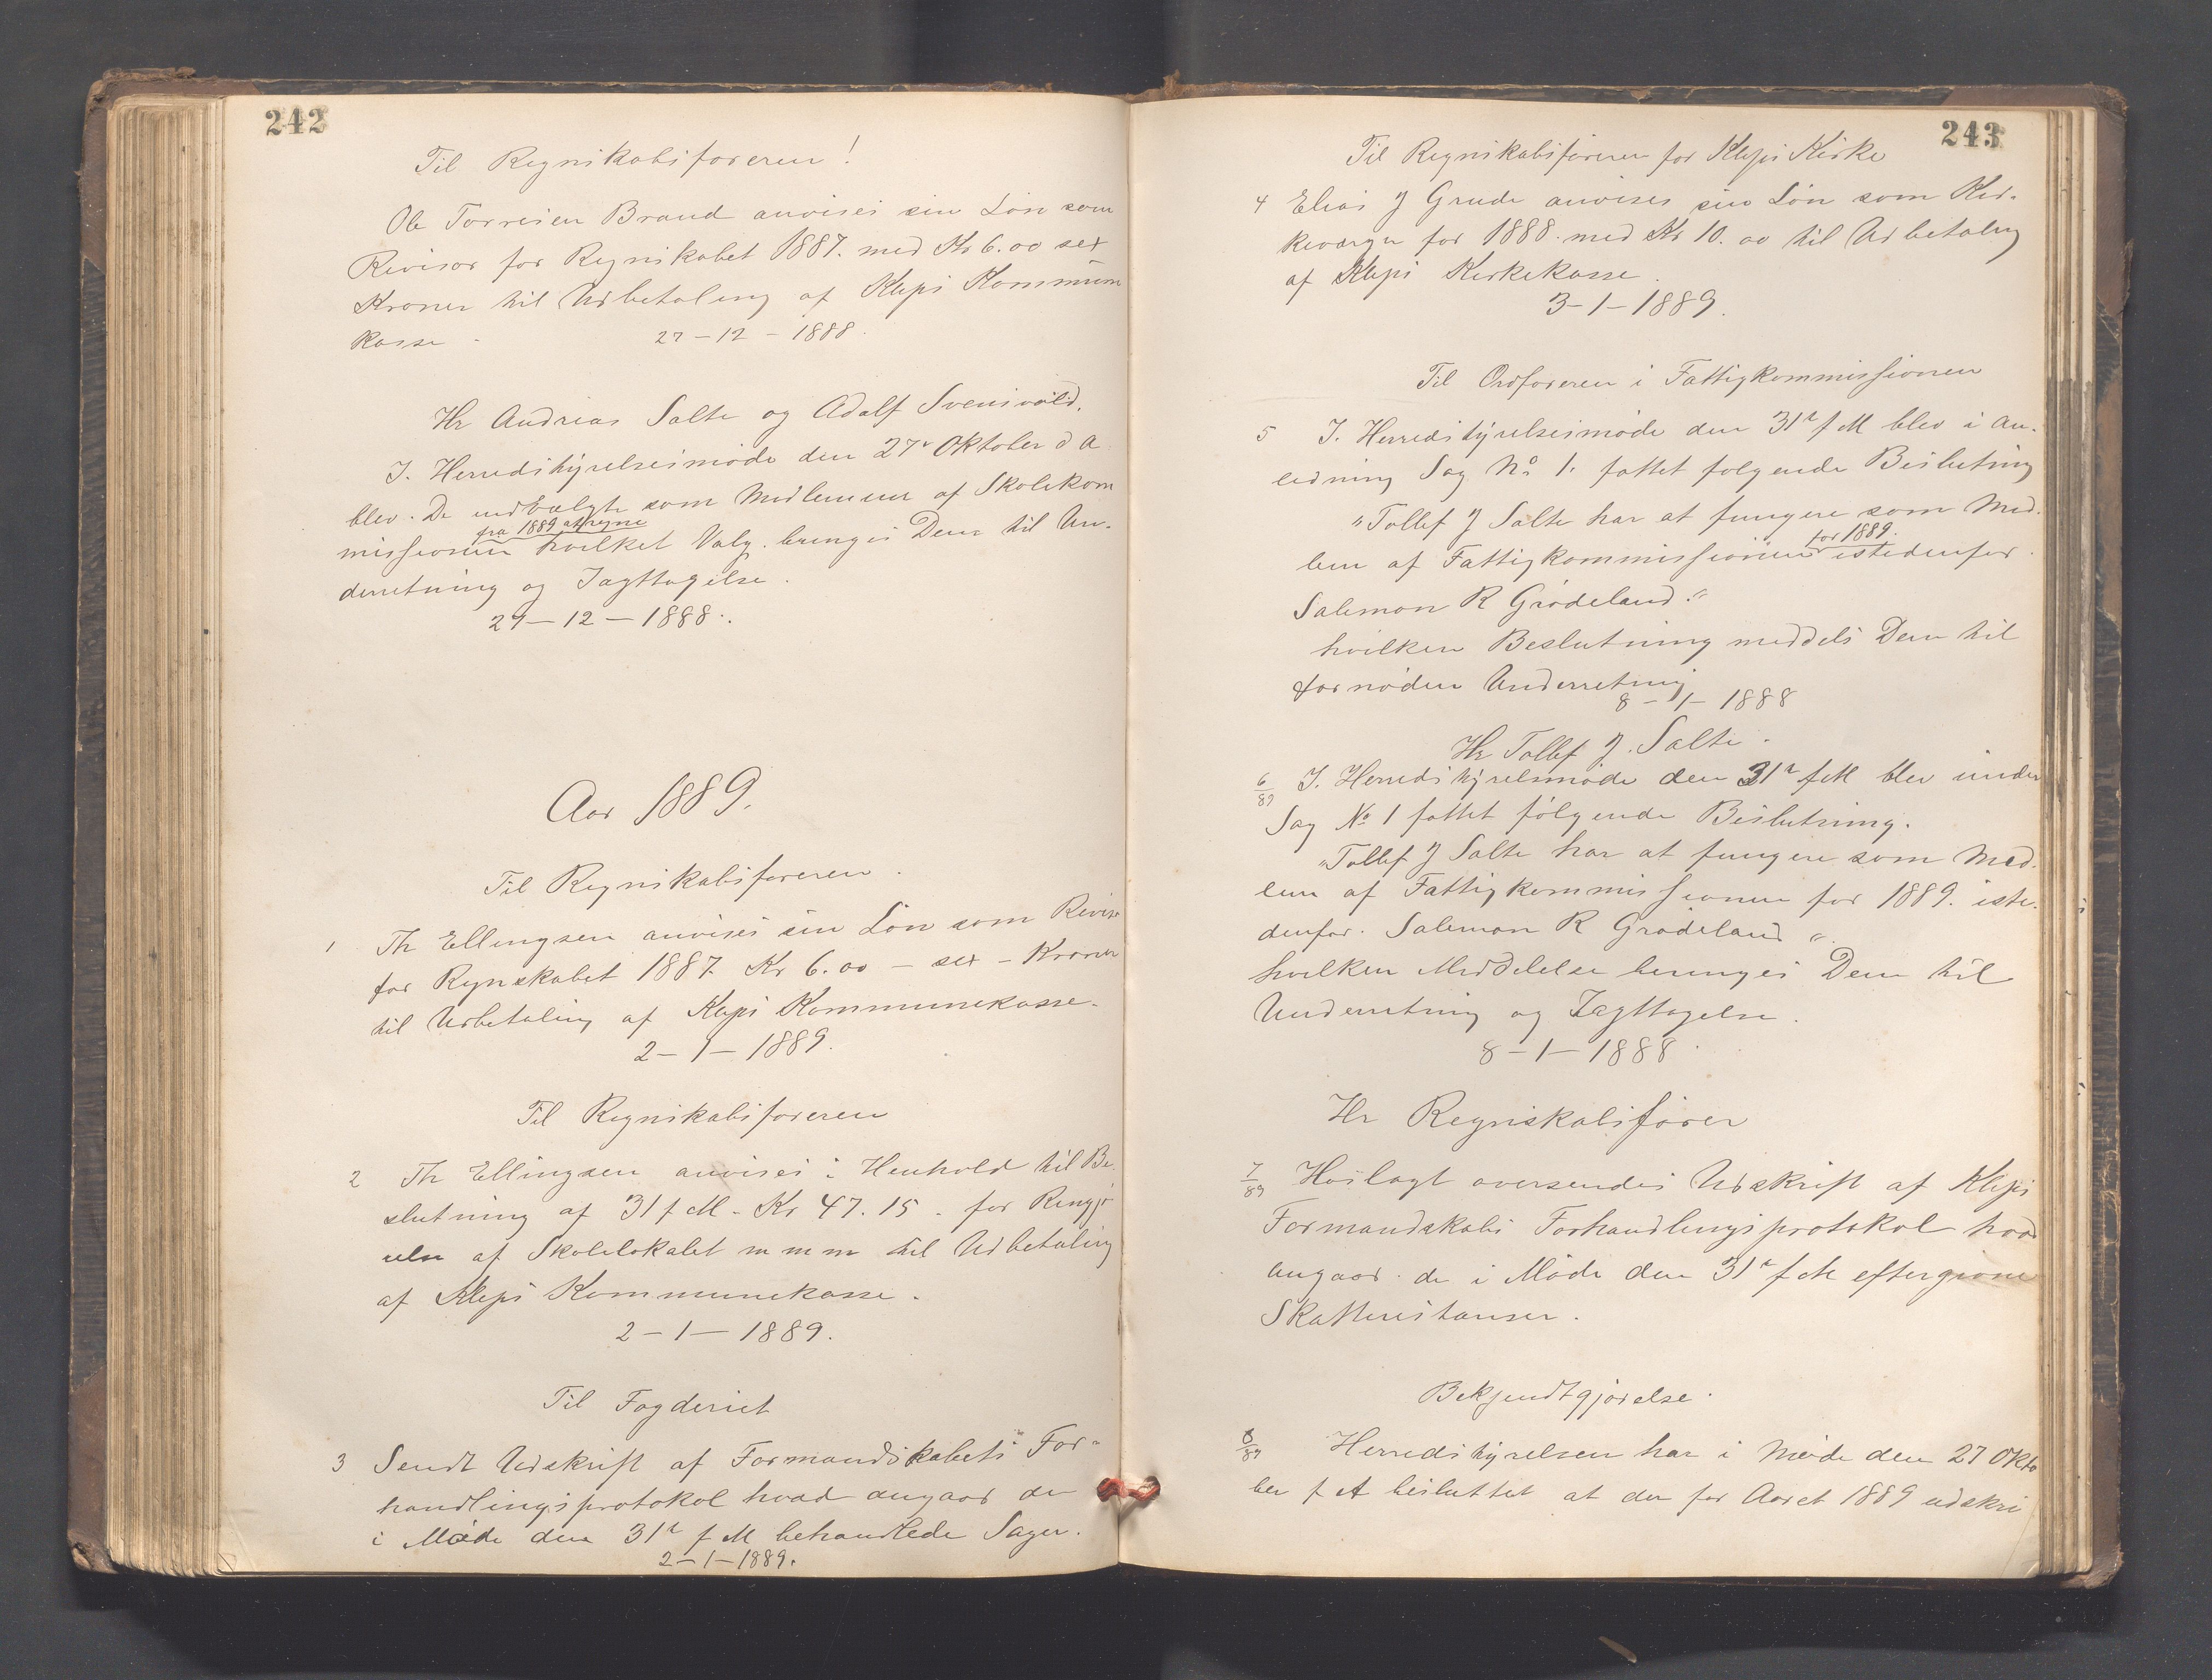 242
Til Regnskabsføreren!
Ole Torresen Braud anvises sin Løn som
Revisor for Regnskabet 1887. med Kr 6.00 sex
Kroner til Udbetaling af Kleps Kommune
kasse.
27-12-1888.
Hr Andreas Salte og Adolf Svensvold.
I. Herredstyrelsesmøde den 27de Oktober d A
blev. De indvalgte som Medlemmer af Skolekom
fra 1889 at regne
missionen hvilket Valg. bringes Dem til Un-
derretning og Iagttagelse.
29-12-1888.
Aar 1889.
Til Regnskabsføreren.
1 Th Ellingsen anvises sin Løn som Revisor
for Regnskabet 1887. Kr 6.00 - sex - Kroner
til Udbetaling af Kleps Kommunekasse.
2-1-1889.
Til Regnskabsføreren
2 Th Ellingsen anvises i Henhold til Be-
slutning af 31 f M. Kr 47.15. for Rengjø
relse af Skolelokalet m m m til Udbetaling
af Kleps Kommunekasse.
2-1-1889.
Til Fogderiet
3 Sendt Udskrift af Formandskabets For-
handlingsprotokol hvad angaar de
i Møde den 31te f M behandlede Sager.
2-1-1889.
243
Til Regnskabsføreren for Kleps Kirke
4 Elias J Grude anvises sin Løn som Kir-
keværge for 1888. med Kr 10.00 til Udbetaling
af Kleps Kirkekasse.
3-1-1889.
Til Ordføreren i Fattigkommissionen
5 I. Herredstyrelsesmøde den 31te f M blev i An-
ledning Sag No 1. fattet følgende Beslutning
"Tollef J Salte har at fungere som Med-
for 1889.
lem af Fattigkommissionen istedenfor
Salemon R Grødeland."
hvilken Beslutning meddels Dem til
fornøden Underretning
8-1-1888
Hr Tollef J. Salte.
6/89 I. Herredstyrelsmøde den 31te f M blev under
Sag No 1 fattet følgende Beslutning.
"Tollef J Salte har at fungere som Med-
lem af Fattigkommissionen for 1889. iste-
denfor. Salemon R Grødeland".
hvilken Meddelelse bringes Dem til
Underretning og Iagttagelse.
8-1-1888.
Hr Regnskabsfører
7/89 Hoslagt oversendes Udskrift af Kleps
Formandskabs Forhandlingsprotokol hvad
angaar. de i Møde den 31te f M eftergivne
Skatterestanser.
Bekjendtgjørelse.
8/89 Herredstyrelsen har i Møde den 27 Okto
ber f A besluttet at der for Aaret 1889 udskri